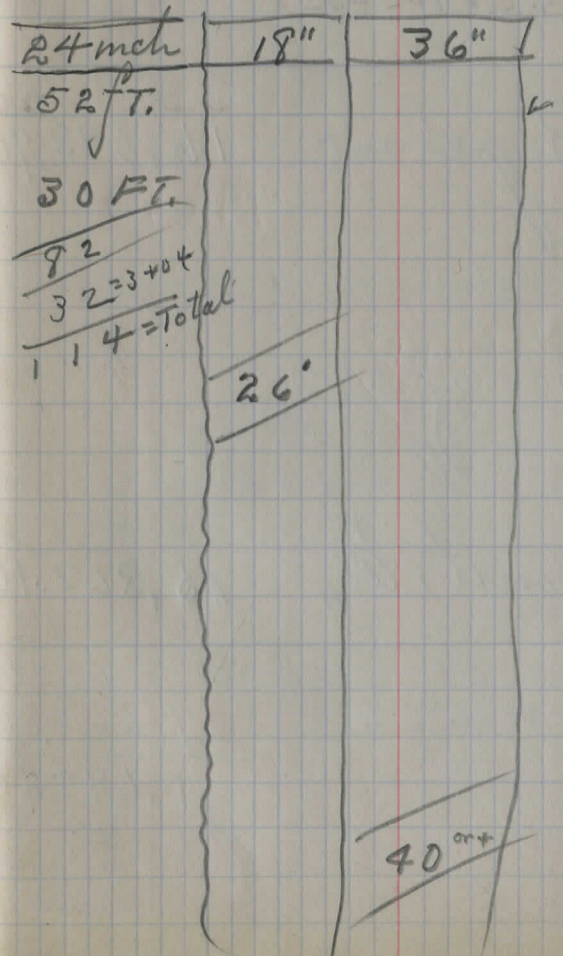 24 inch 18" 36"
52 ft.
30 FT.
82
32 = 3+04
114 = Total
26'
40 or +